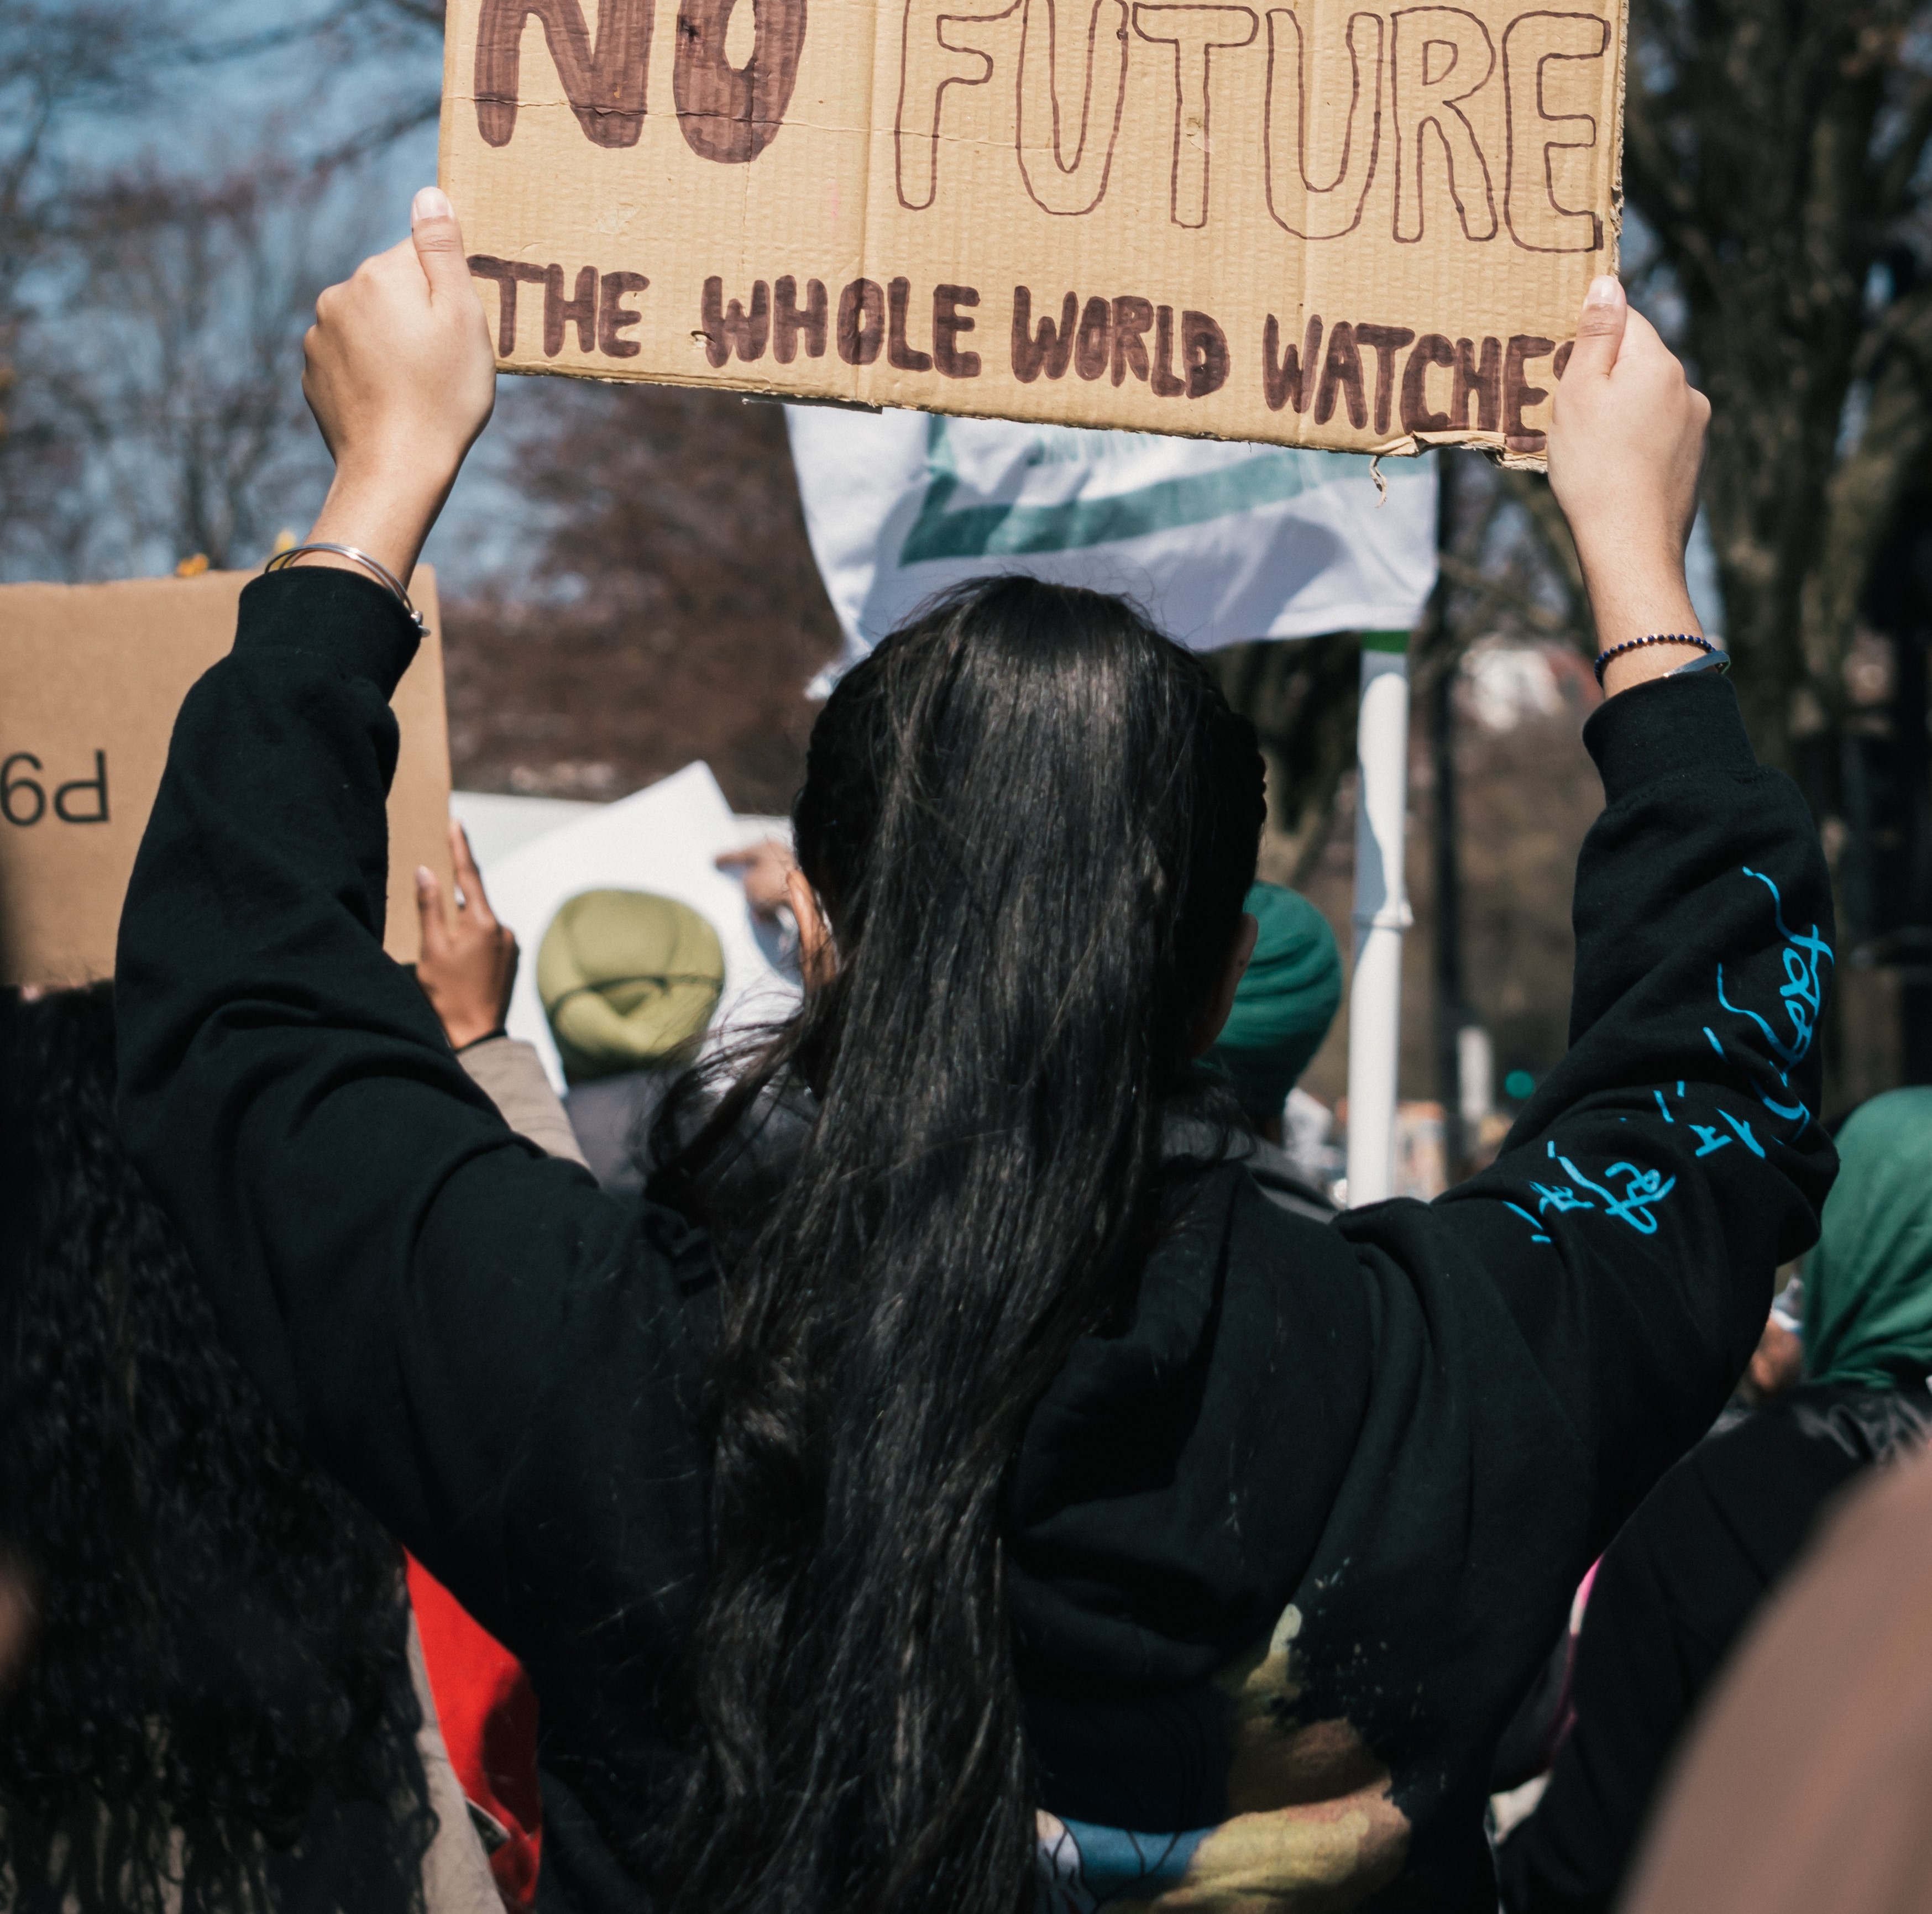 NO FUTURE
THE WHOLE WORLD WATCHES
Pg